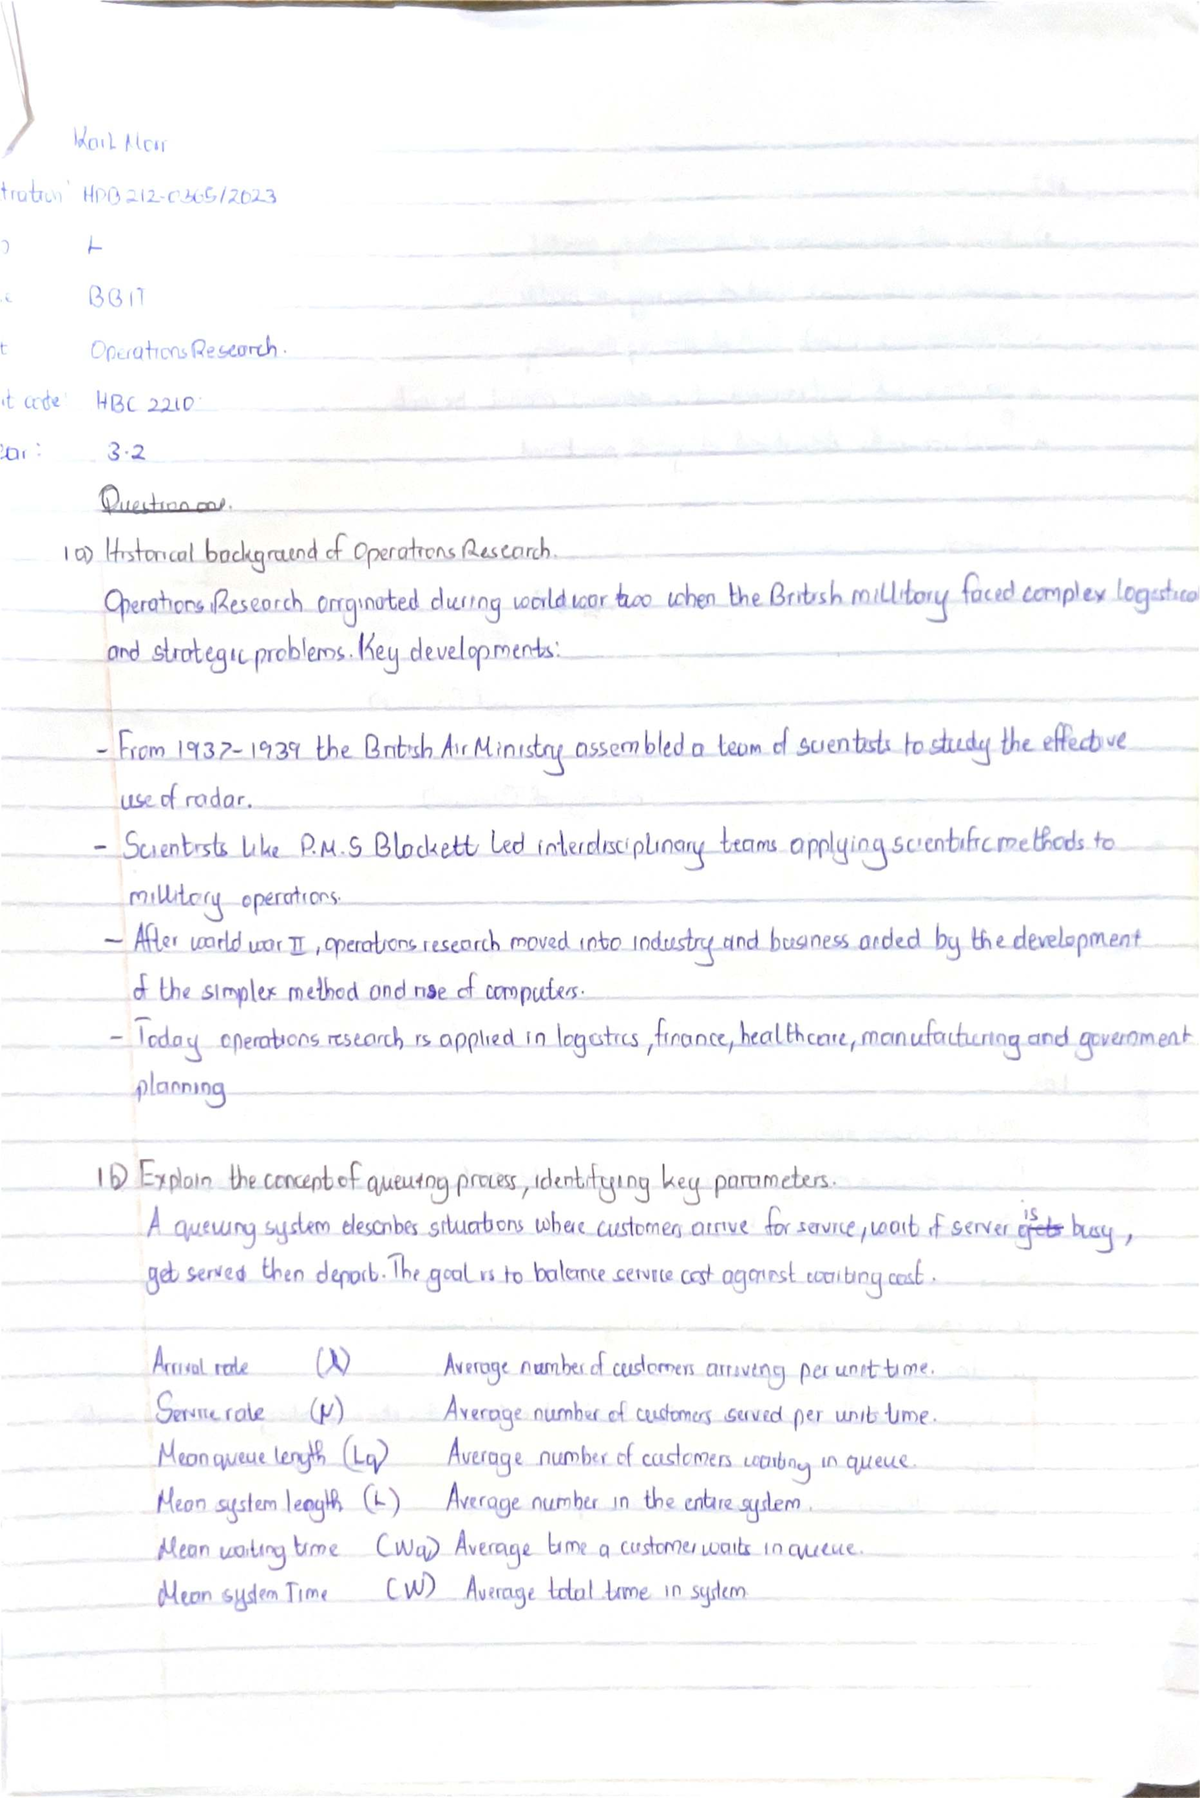 Karl Marr
tration HPB 212-0365/2023
L
BBIT
t Operations Research.
it code HBC 2210
ear: 3.2
Question one.
1a) Historical background of Operations Research.
Operations Research originated during world war two when the British millitary faced complex logistical
and strategic problems. Key developments:
- From 1937-1939 the British Air Ministry assembled a team of scientists to study the effective
use of radar.
- Scientists like P.M.S Blackett led interdisciplinary teams applying scientific methods to
millitary operations.
- After world war II, operations research moved into industry and business aided by the development
of the simplex method and rise of computers.
- Today operations research is applied in logistics, finance, healthcare, manufacturing and government
planning
1b) Explain the concept of queuing process, identifying key parameters.
A queuing system describes situations where customers arrive for service, wait if server is busy,
get served then depart. The goal is to balance service cost against waiting cost.
Arrival rate (λ) Average number of customers arriving per unit time.
Service rate (μ) Average number of customers served per unit time.
Mean queue length (Lq) Average number of customers waiting in queue.
Mean system length (L) Average number in the entire system.
Mean waiting time (Wq) Average time a customer waits in queue.
Mean system Time (W) Average total time in system